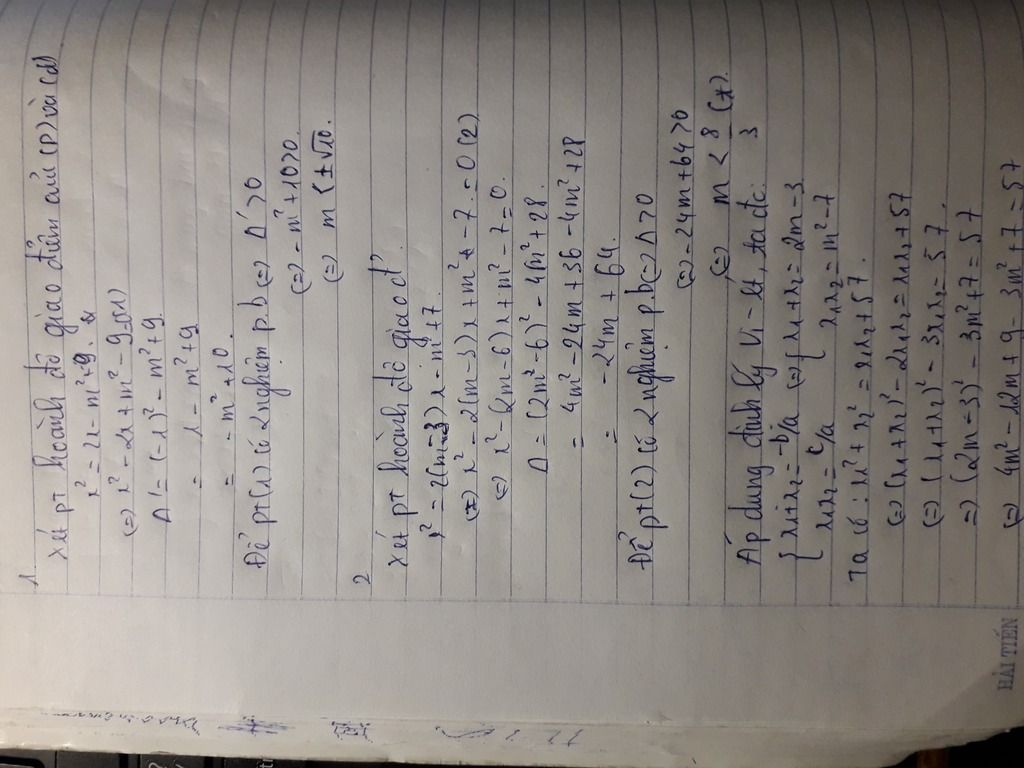 1
Xét pt hoành độ giao điểm của (P) và (d)
x² = 2x - m² + 9.
(=) x² - 2x + m² - 9 = 0 (1)
Δ' = (-1)² - m² + 9.
= 1 - m² + 9
= - m² + 10.
Để pt (1) có 2 nghiệm p.b (=) Δ' > 0
(=) - m² + 10 > 0.
(=) m < ±√10.
2
Xét pt hoành độ giao đ'
x² = 2(m - 3)x - m² + 7.
(=) x² - 2(m - 3)x + m² - 7 = 0 (2)
(=) x² - (2m - 6)x + m² - 7 = 0.
Δ = (2m - 6)² - 4m² + 28.
= 4m² - 24m + 36 - 4m² + 28
= - 24m + 64.
Để pt (2) có 2 nghiệm p.b (=) Δ > 0
(=) - 24m + 64 > 0
(=) m < 8/3 (*).
Áp dụng định lý Vi-ét, ta đc:
{ x₁ + x₂ = -b/a (=) { x₁ + x₂ = 2m - 3
x₁x₂ = c/a x₁x₂ = m² - 7
Ta có: x₁² + x₂² = x₁x₂ + 57.
(=) (x₁ + x₂)² - 2x₁x₂ = x₁x₂ + 57
(=) (x₁ + x₂)² - 3x₁x₂ = 57.
=) (2m - 3)² - 3m² + 7 = 57
(=) 4m² - 12m + 9 - 3m² + 7 = 57
HẢI TIẾN